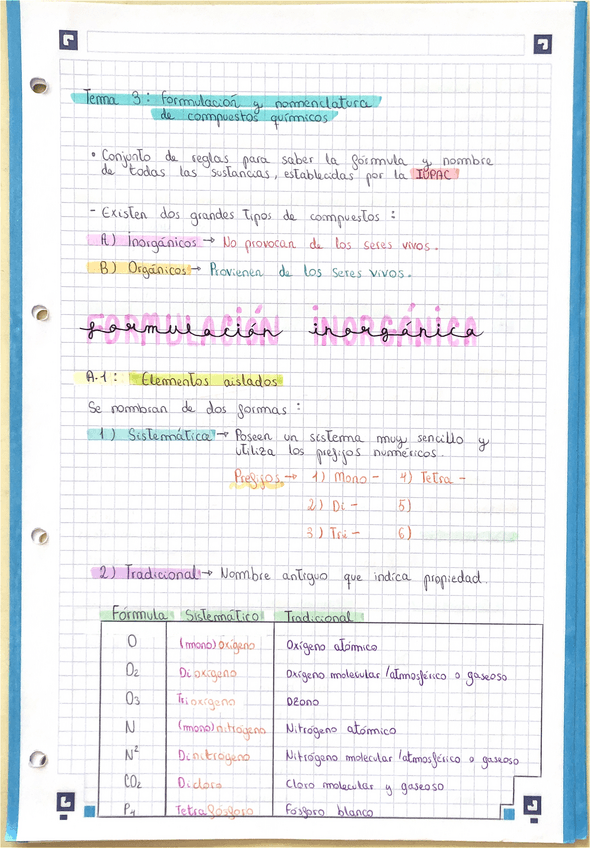 Tema 3: Formulación y nomenclatura
de compuestos químicos
• Conjunto de reglas para saber la fórmula y nombre
de todas las sustancias, establecidas por la IUPAC
- Existen dos grandes tipos de compuestos :
A) Inorgánicos → No provocan de los seres vivos.
B) Orgánicos → Provienen de los seres vivos.
FORMULACIÓN INORGÁNICA
formulación inorgánica
A.1: Elementos aislados
Se nombran de dos formas :
1) Sistemática → Poseen un sistema muy sencillo y
utiliza los prefijos numéricos.
Prefijos → 1) Mono - 4) Tetra -
2) Di - 5)
3) Tri - 6)
2) Tradicional → Nombre antiguo que indica propiedad.
Fórmula Sistemático Tradicional
O (mono)oxígeno Oxígeno atómico
O2 Dioxigeno Oxígeno molecular /atmosférico o gaseoso
O3 Trioxigeno Ozono
N (mono)nitrógeno Nitrógeno atómico
N² Dinitrogeno Nitrógeno molecular /atmosférico o gaseoso
CO2 Dicloro Cloro molecular y gaseoso
P4 Tetrafósforo Fósforo blanco